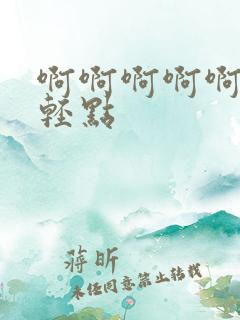 啊啊啊啊啊
轻點
蔣昕
未任同意禁止转载